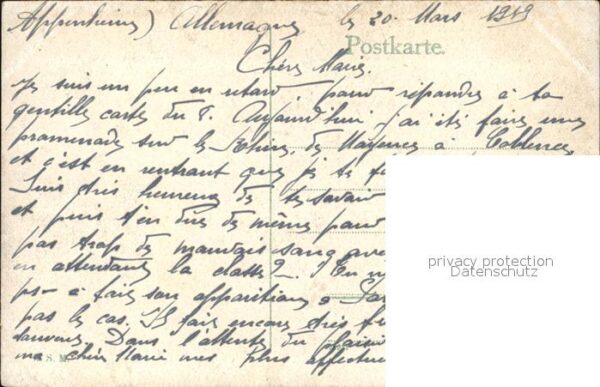 Appenheim) Allemagne le 20 Mars 1919
Postkarte.
Chère Marie.
Je suis un peu en retard pour répondre à ta
gentille carte du 8. Aujourd'hui j'ai été faire une
promenade sur le Rhin, de Mayence à Coblence
et c'est en rentrant que je te
Suis très heureux de te savoir
et puis t'en dire de même pour
pas trop de mauvais sang avec
en attendant la classe ?
a fait son apparition
pas le cas. Il fait encore très
Dans l'attente du plaisir
ma chère Marie mes plus affectueu
S. M.
privacy protection
Datenschutz